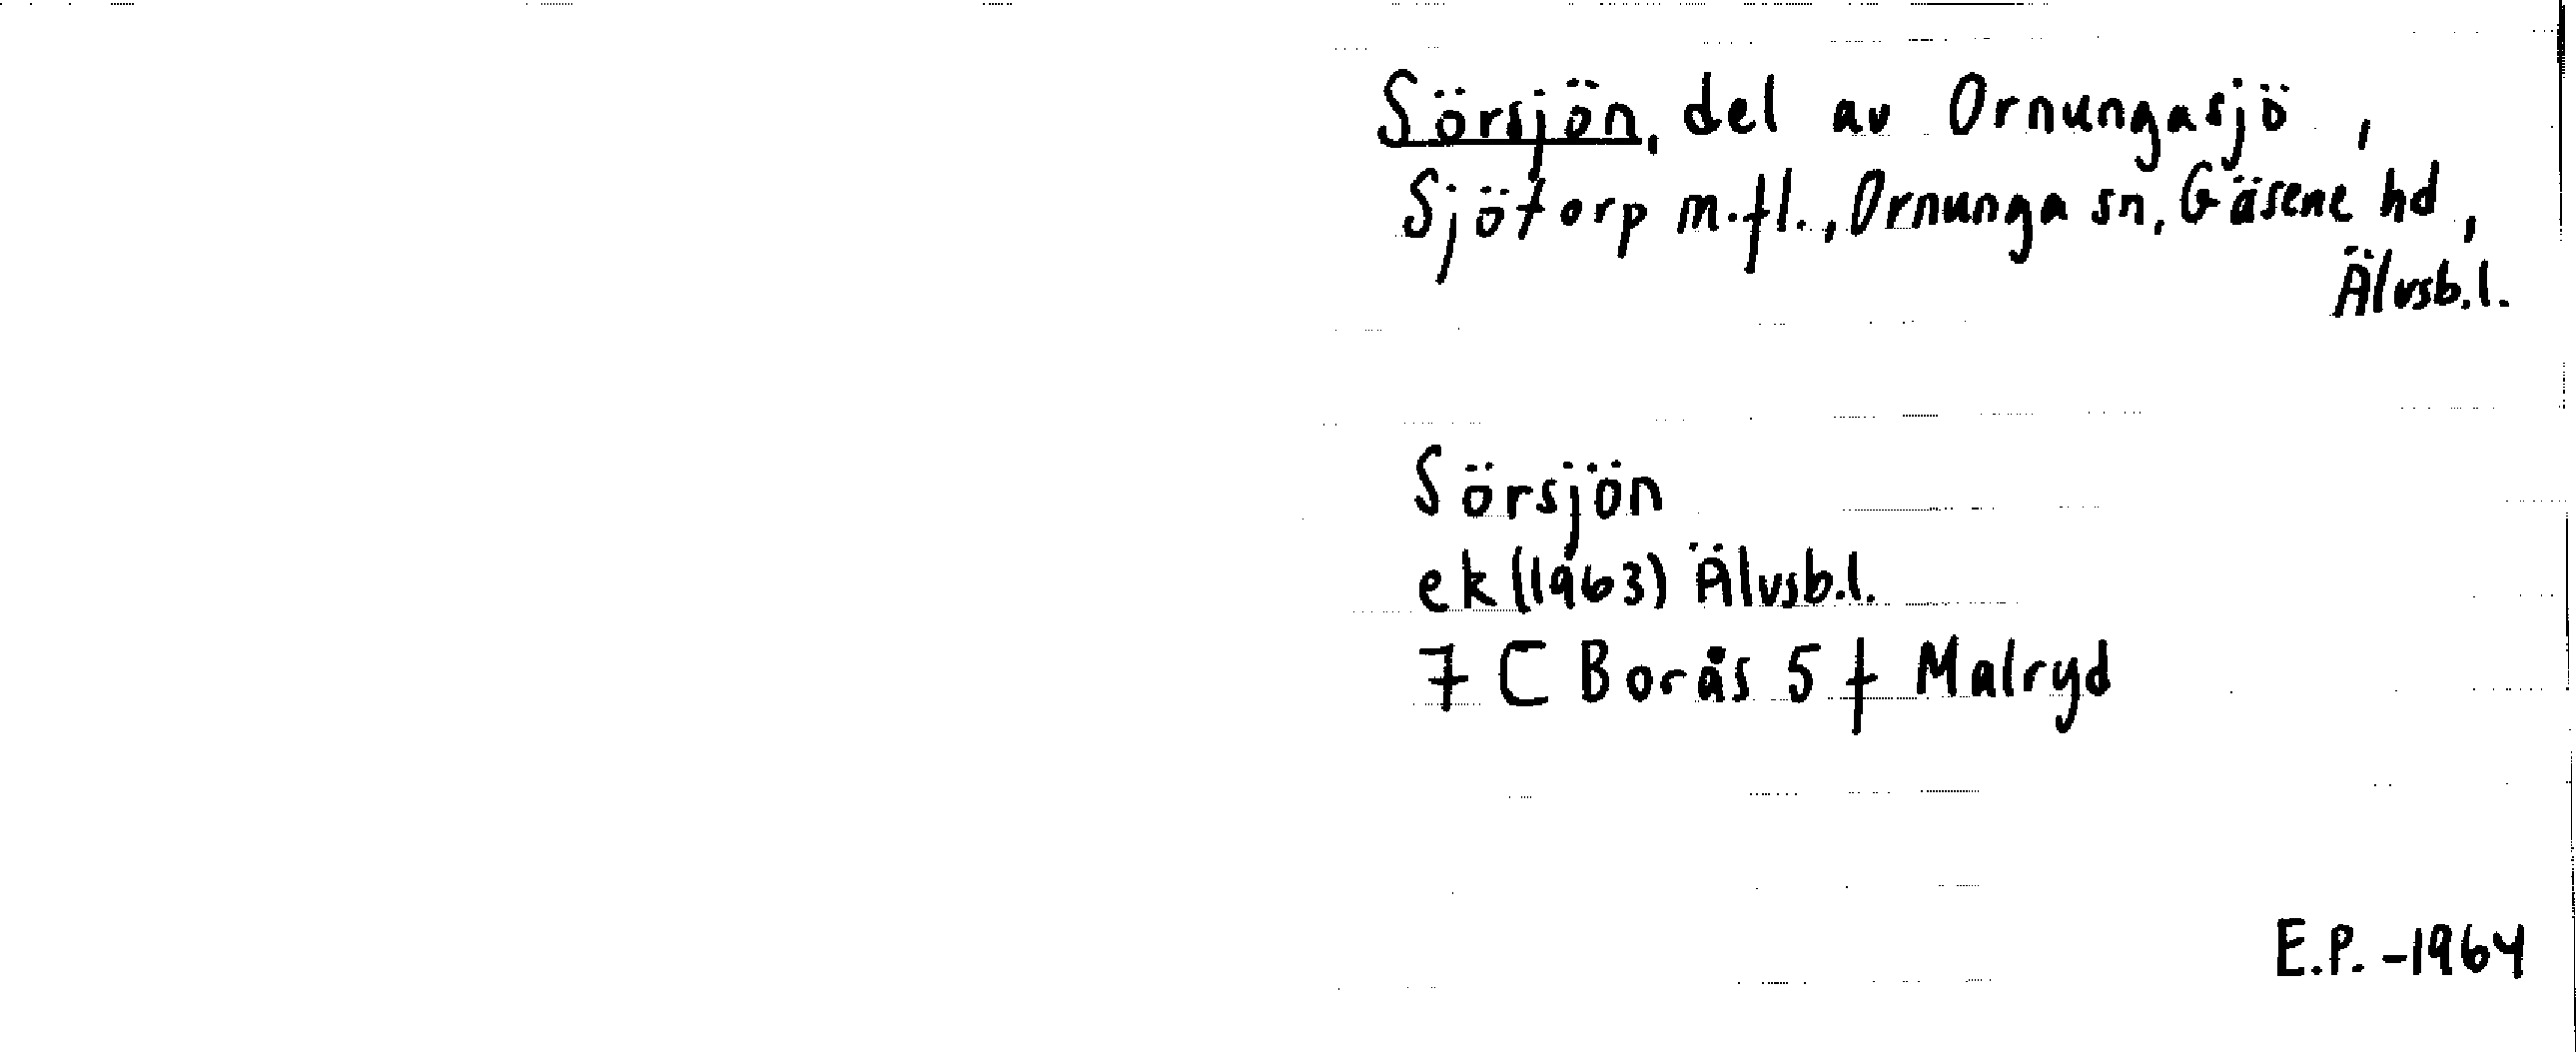 Sörsjön, del av Ornungasjö,
Sjötorp m.fl., Ornunga sn, Gäsene hd,
Älvsb.l.
Sörsjön
ek (1963) Älvsb.l.
7 C Borås 5 f Malryd
E.P. -1964